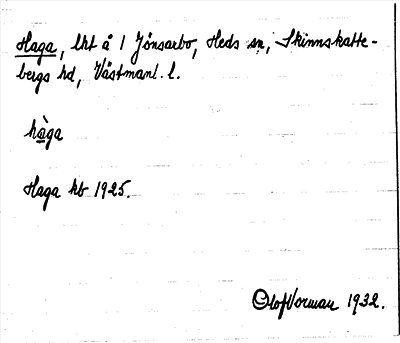 Haga, lht å 1 Jönsarbo, Heds sn, Skinnskatte-
bergs hd, Västmanl. l.
hàga
Haga kb 1925.
Olof Vorman 1932.